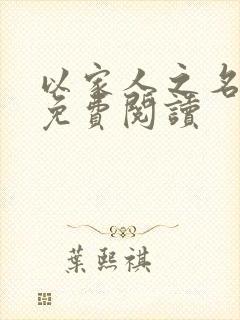 以家人之名
免費閱讀
葉熙祺